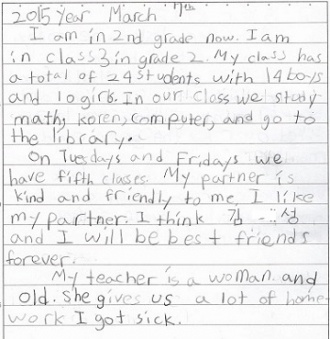 2015 year March 7th
I am in 2nd grade now. I am
in class 3 in grade 2. My class has
a total of 24 students with 14 boys
and 10 girls. In our class we study
math, koren, computer, and go to
the library.
On Tuedays and Fridays we
have fifth classes. My partner is
kind and friendly to me, I like
my partner. I think 김
and I will be best friends
forever.
My teacher is a woman. and
old. She gives us a lot of home
work I got sick.